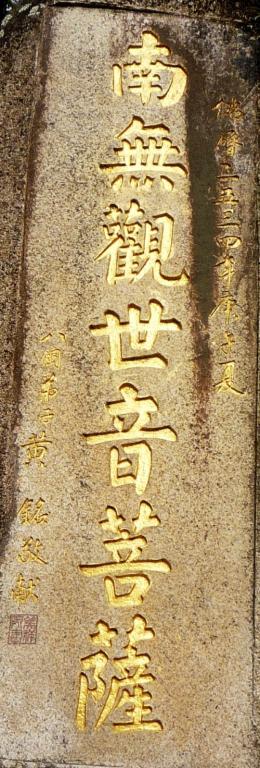 佛曆二五三四年庚午夏
南無觀世音菩薩
八閩弟子黃銘敬献